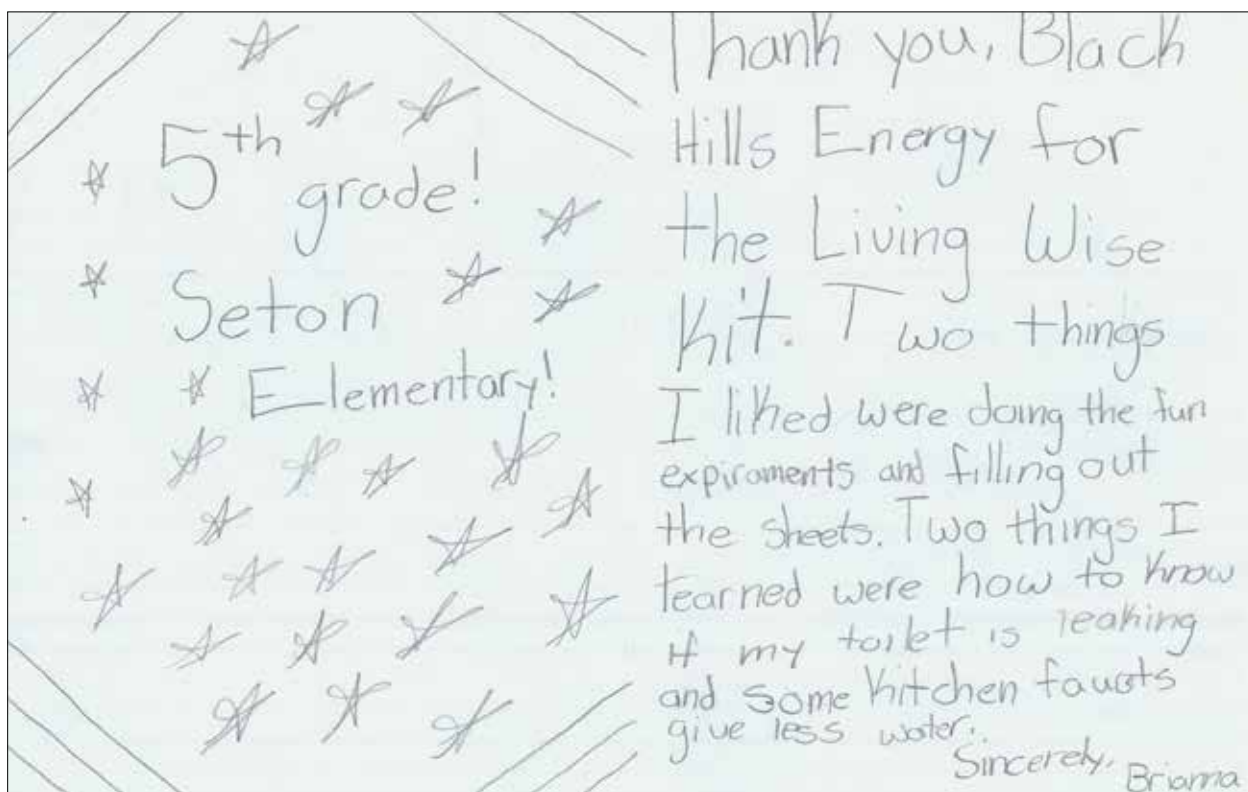 5th
grade!
Seton
Elementary!
Thank you, Black
Hills Energy for
the Living Wise
Kit. Two things
I liked were doing the fun
expiraments and filling out
the sheets. Two things I
learned were how to know
if my toilet is leaking
and some kitchen faucts
give less water.
Sincerely,
Brianna